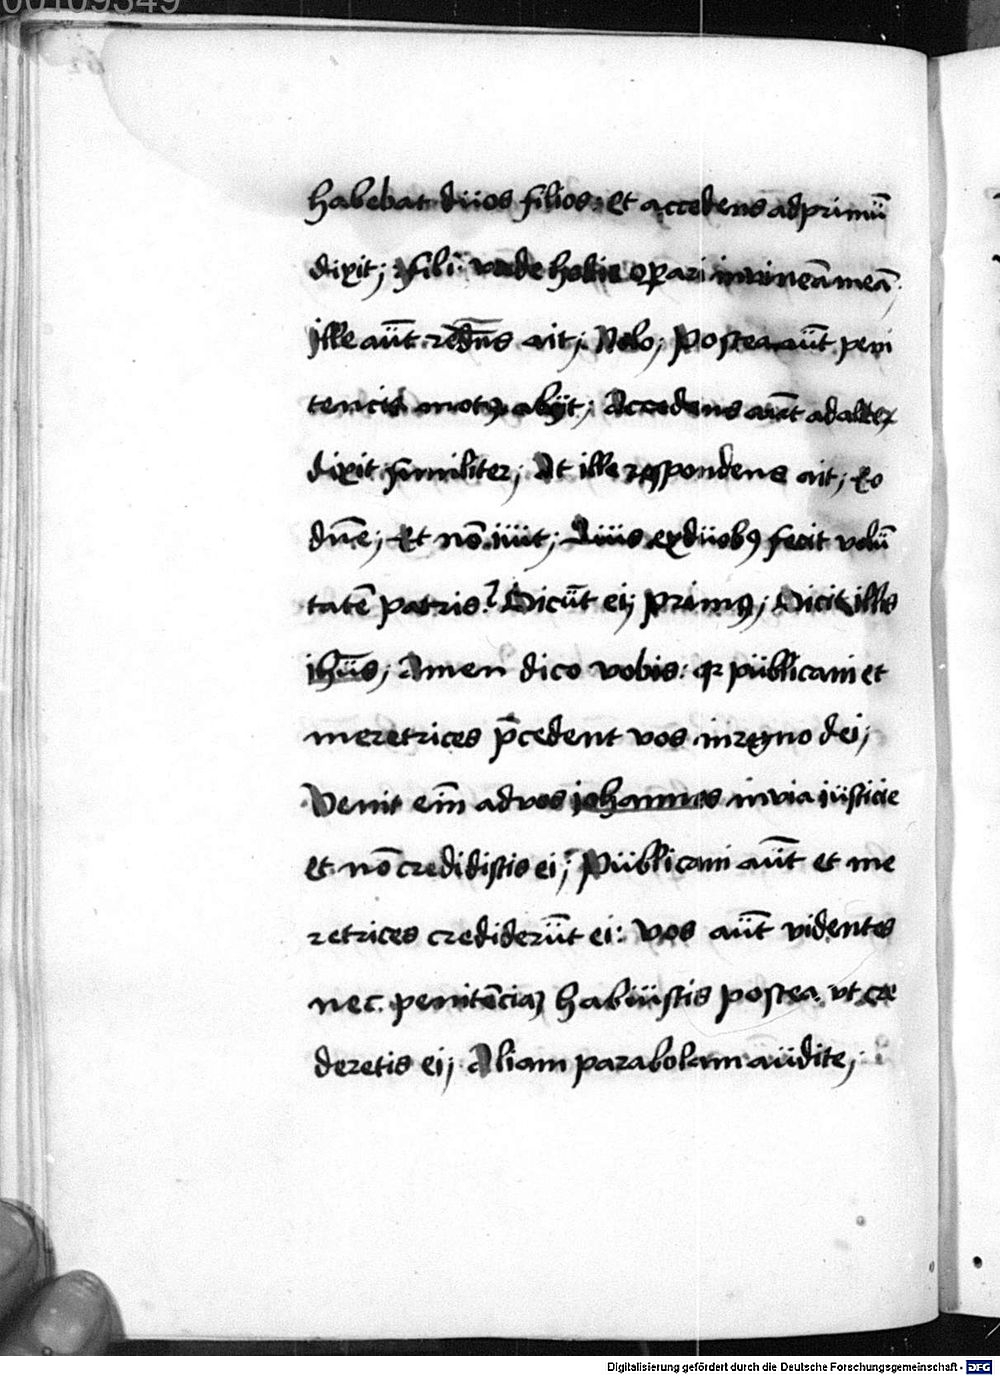 00109349
habebat duos filios: et accedens ad primū
dixit; fili vade hodie oꝑari in vineā meā.
Ille aūt rn̄dēns ait; Nolo; Postea aūt peni
tencia motꝰ abijt; Accedens aūt ad alterꝝ
dixit similiter; At ille respondens ait; Eo
dn̄e; Et nō iuit; Quis ex duobꝰ fecit volū
tatē patris? Dicūt ei; primꝰ; Dicit illis
ihūs; Amen dico vobis: qꝛ publicani et
meretrices p̄cedent vos in regno dei;
Venit em̄ ad vos iohannes in via iusticie
et nō credidistis ei; Publicani aūt et me
retrices crediderūt ei: Vos aūt videntes
nec penitēciaꝫ habuistis postea vt cre
deretis ei; Aliam parabolam audite;
Digitalisierung gefördert durch die Deutsche Forschungsgemeinschaft - DFG